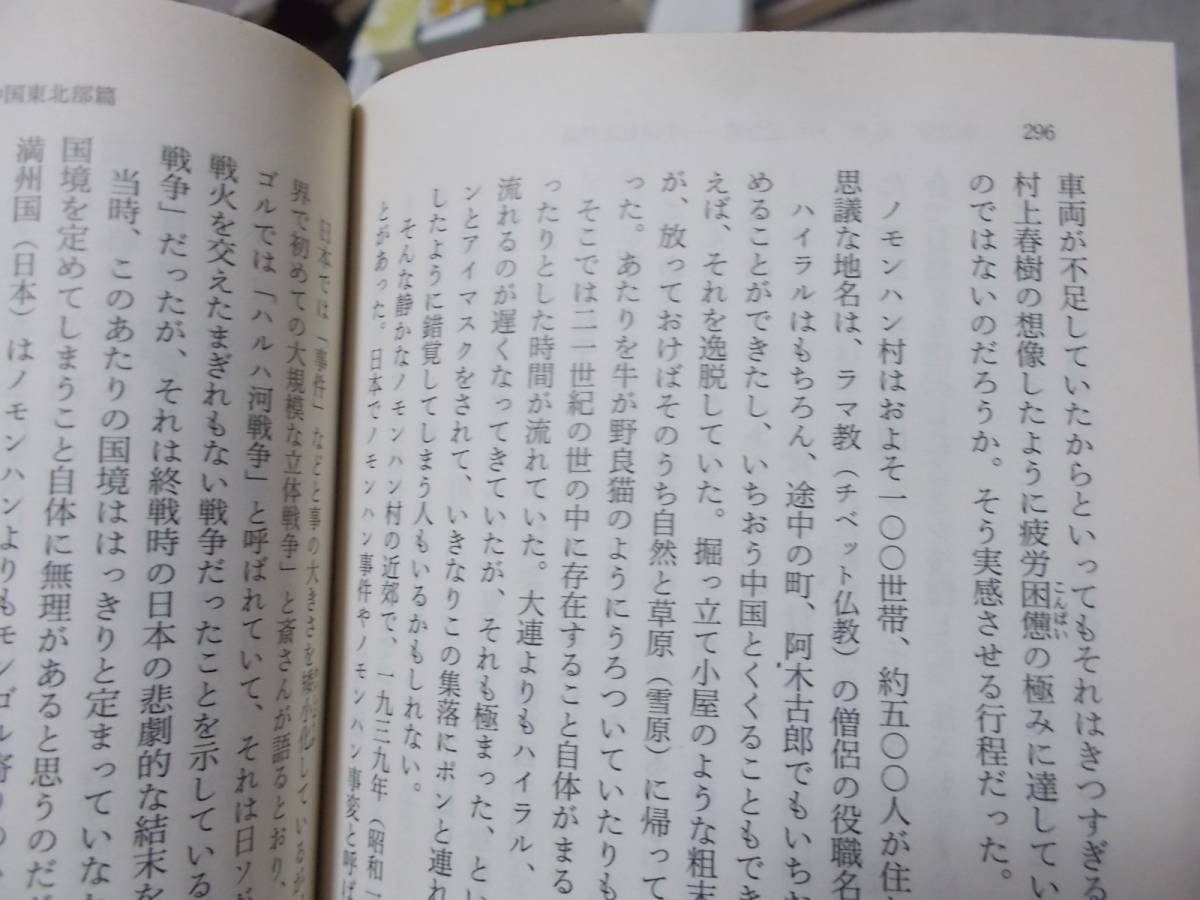 296
車両が不足していたからといってもそれはきつすぎる
村上春樹の想像したように疲労困憊の極みに達してい
こんぱい
のではないのだろうか。そう実感させる行程だった。
ノモンハン村はおよそ一〇〇世帯、約五〇〇人が住
思議な地名は、ラマ教（チベット仏教）の僧侶の役職名
ハイラルはもちろん、途中の町、阿木古郎でもいちお
めることができたし、いちおう中国とくくることもでき
えば、それを逸脱していた。掘っ立て小屋のような粗末
が、放っておけばそのうち自然と草原（雪原）に帰って
った。あたりを牛が野良猫のようにうろついていたりも
そこでは二一世紀の世の中に存在すること自体がまる
ったりとした時間が流れていた。大連よりもハイラル、
流れるのが遅くなってきていたが、それも極まった、とい
ンとアイマスクをされて、いきなりこの集落にポンと連れ
したように錯覚してしまう人もいるかもしれない。
そんな静かなノモンハン村の近郊で、一九三九年（昭和一
とがあった。日本でノモンハン事件やノモンハン事変と呼ば
国東北部篇
日本では「事件」などと事の大きさを矮小化しているが、
界で初めての大規模な立体戦争」と斎さんが語るとおり、
ゴルでは「ハルハ河戦争」と呼ばれていて、それは日ソが
戦火を交えたまぎれもない戦争だったことを示している
戦争」だったが、それは終戦時の日本の悲劇的な結末を
当時、このあたりの国境ははっきりと定まっていな
国境を定めてしまうこと自体に無理があると思うのだ
満州国（日本）はノモンハンよりもモンゴル寄りの